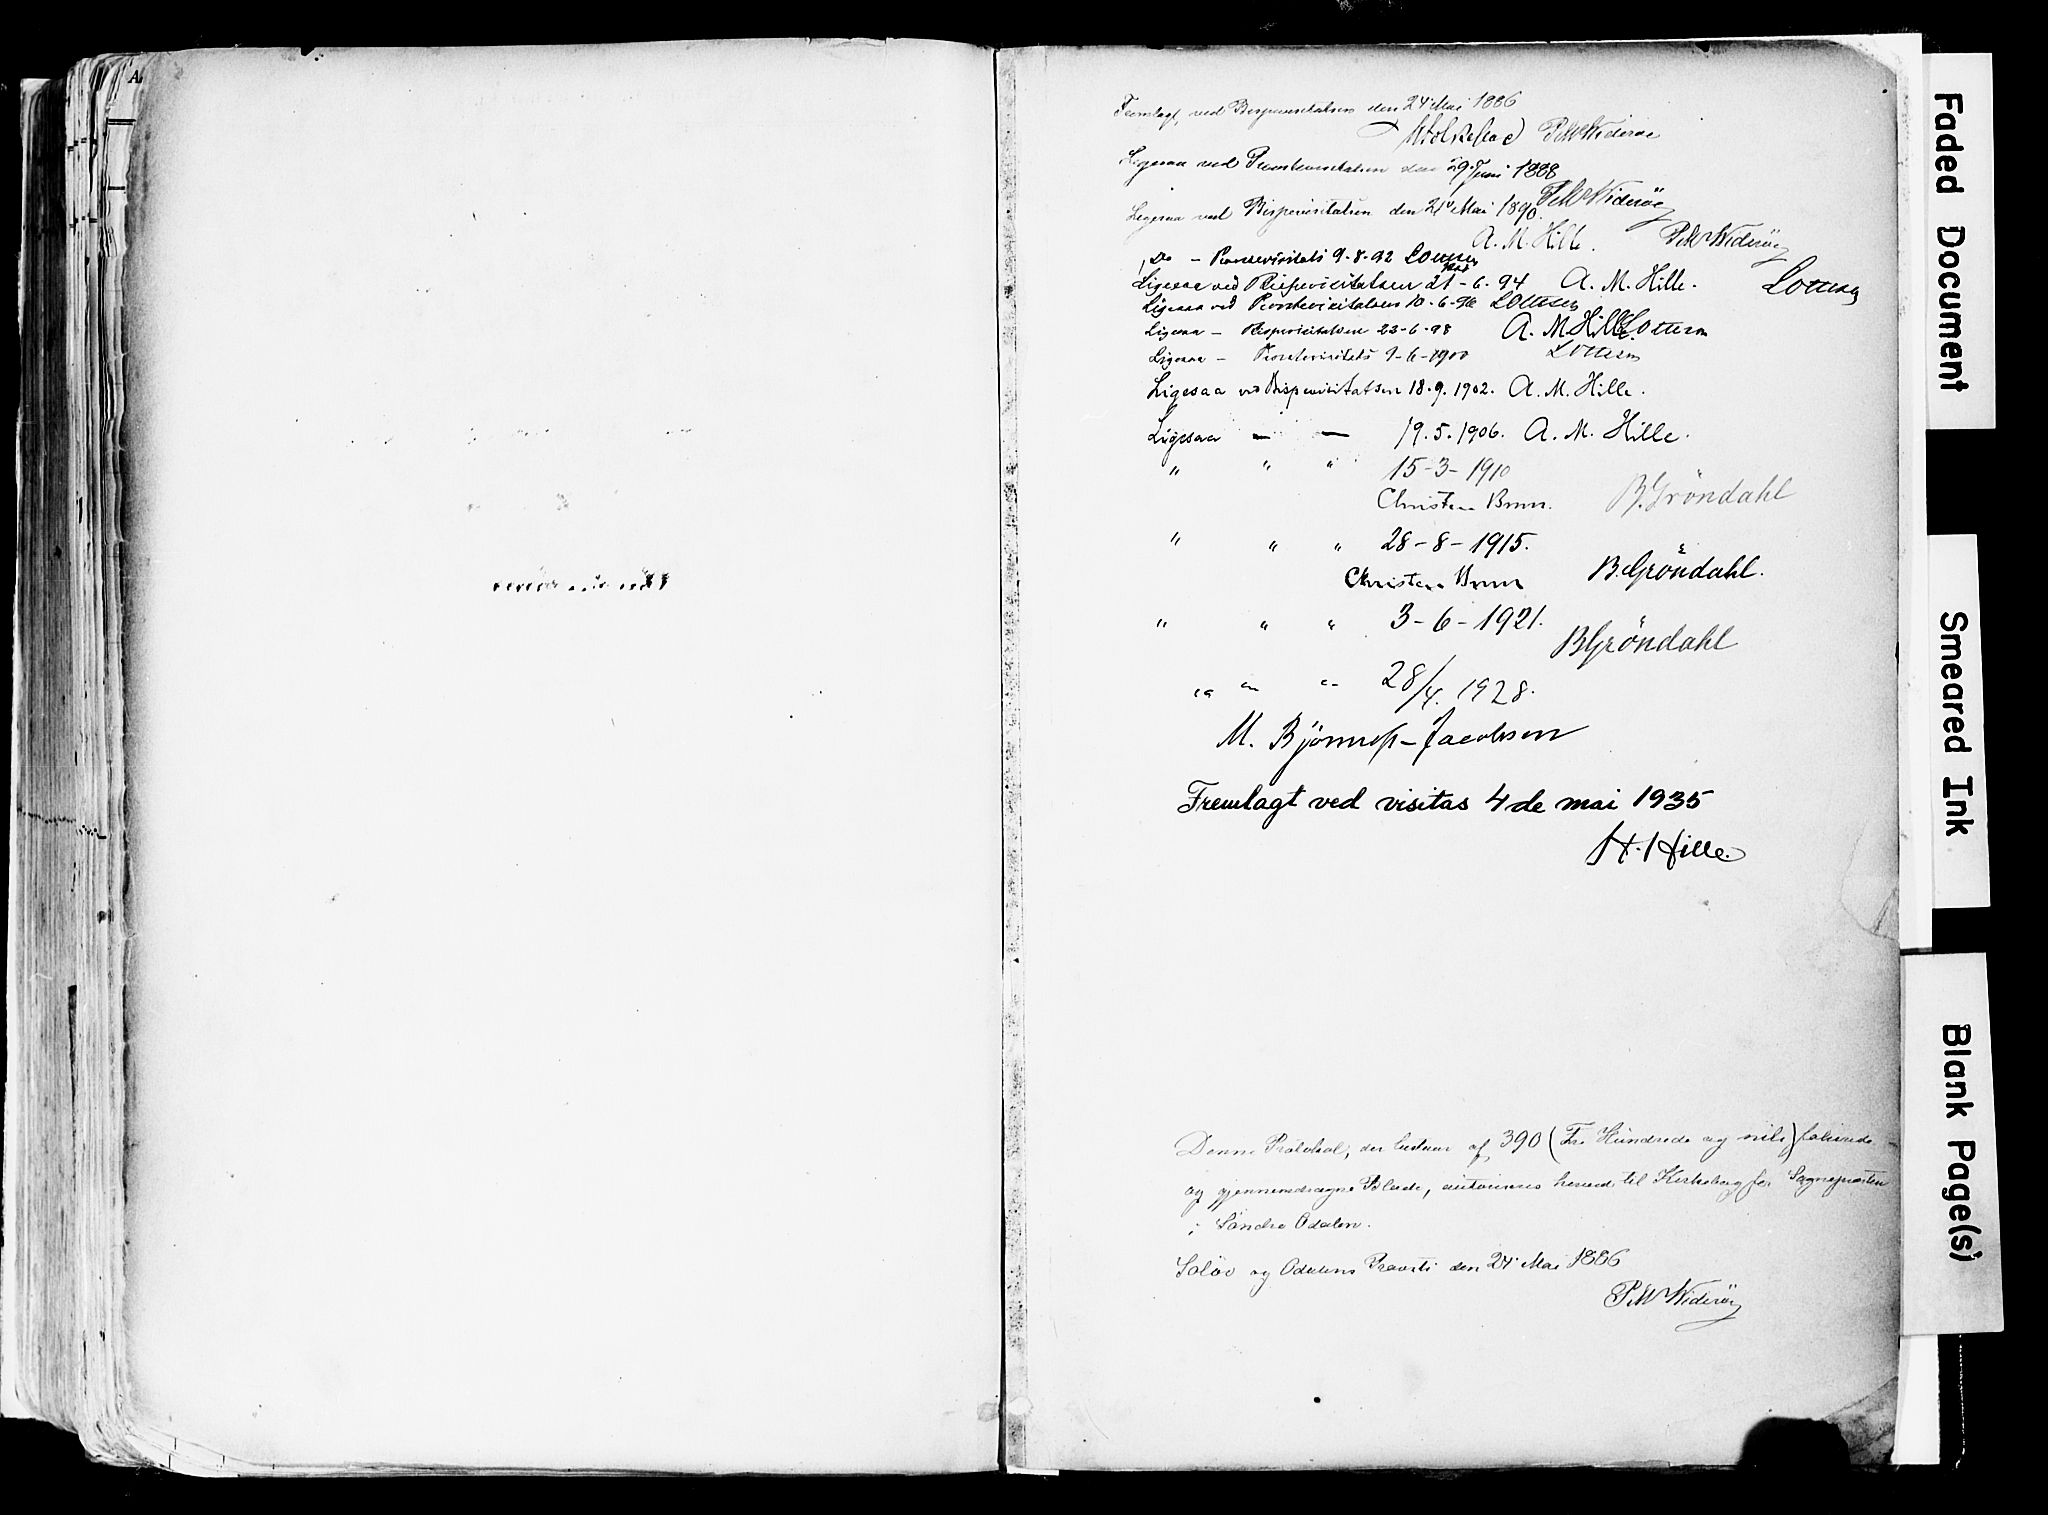 Fremlagt ved Bispevisitatsen den 24 Mai 1886
P M Widerøe
Ligesaa ved Provstevisitatsen den 29 Juni 1888
P M Wideröe
Ligesaa ved Bispevisitatsen den 21 Mai 1890.
A. M. Hille. P M Wideröe
Do - Provstevisitats 9-8-92
Ligesaa ved Bispevisitatsen 21-6-94 A. M. Hille.
Ligesaa ved Provstevisitatsen 10-6-96
Ligesaa - Bispevisitatsen 23-6-98 A. M. Hille.
Ligesaa - Provstevisitats 9-6-1900
Ligesaa ved Bispevisitatsen 18.9.1902. A. M. Hille.
Ligesaa — — 19.5.1906. A. M. Hille.
" " " 15-3-1910
Christen Brun. B. Gröndahl
" " " 28-8-1915.
Christen Brun B. Gröndahl.
" " " 3-6-1921.
B Gröndahl
" " " 28/4. 1928.
M. Björnnes-Jacobsen
Fremlagt ved visitas 4de mai 1935
H. Hille.
Denne Protokol, der bestaar af 390 (Tre Hundrede og niti) folierede
og gjennemdragne Blade, autoriseres herved til Kirkebog for Sognepræsten
i Söndre Odalen.
Solöer og Odalens Provsti den 24 Mai 1886
P M Wideröe
Faded Document
Smeared Ink
Blank Page(s)